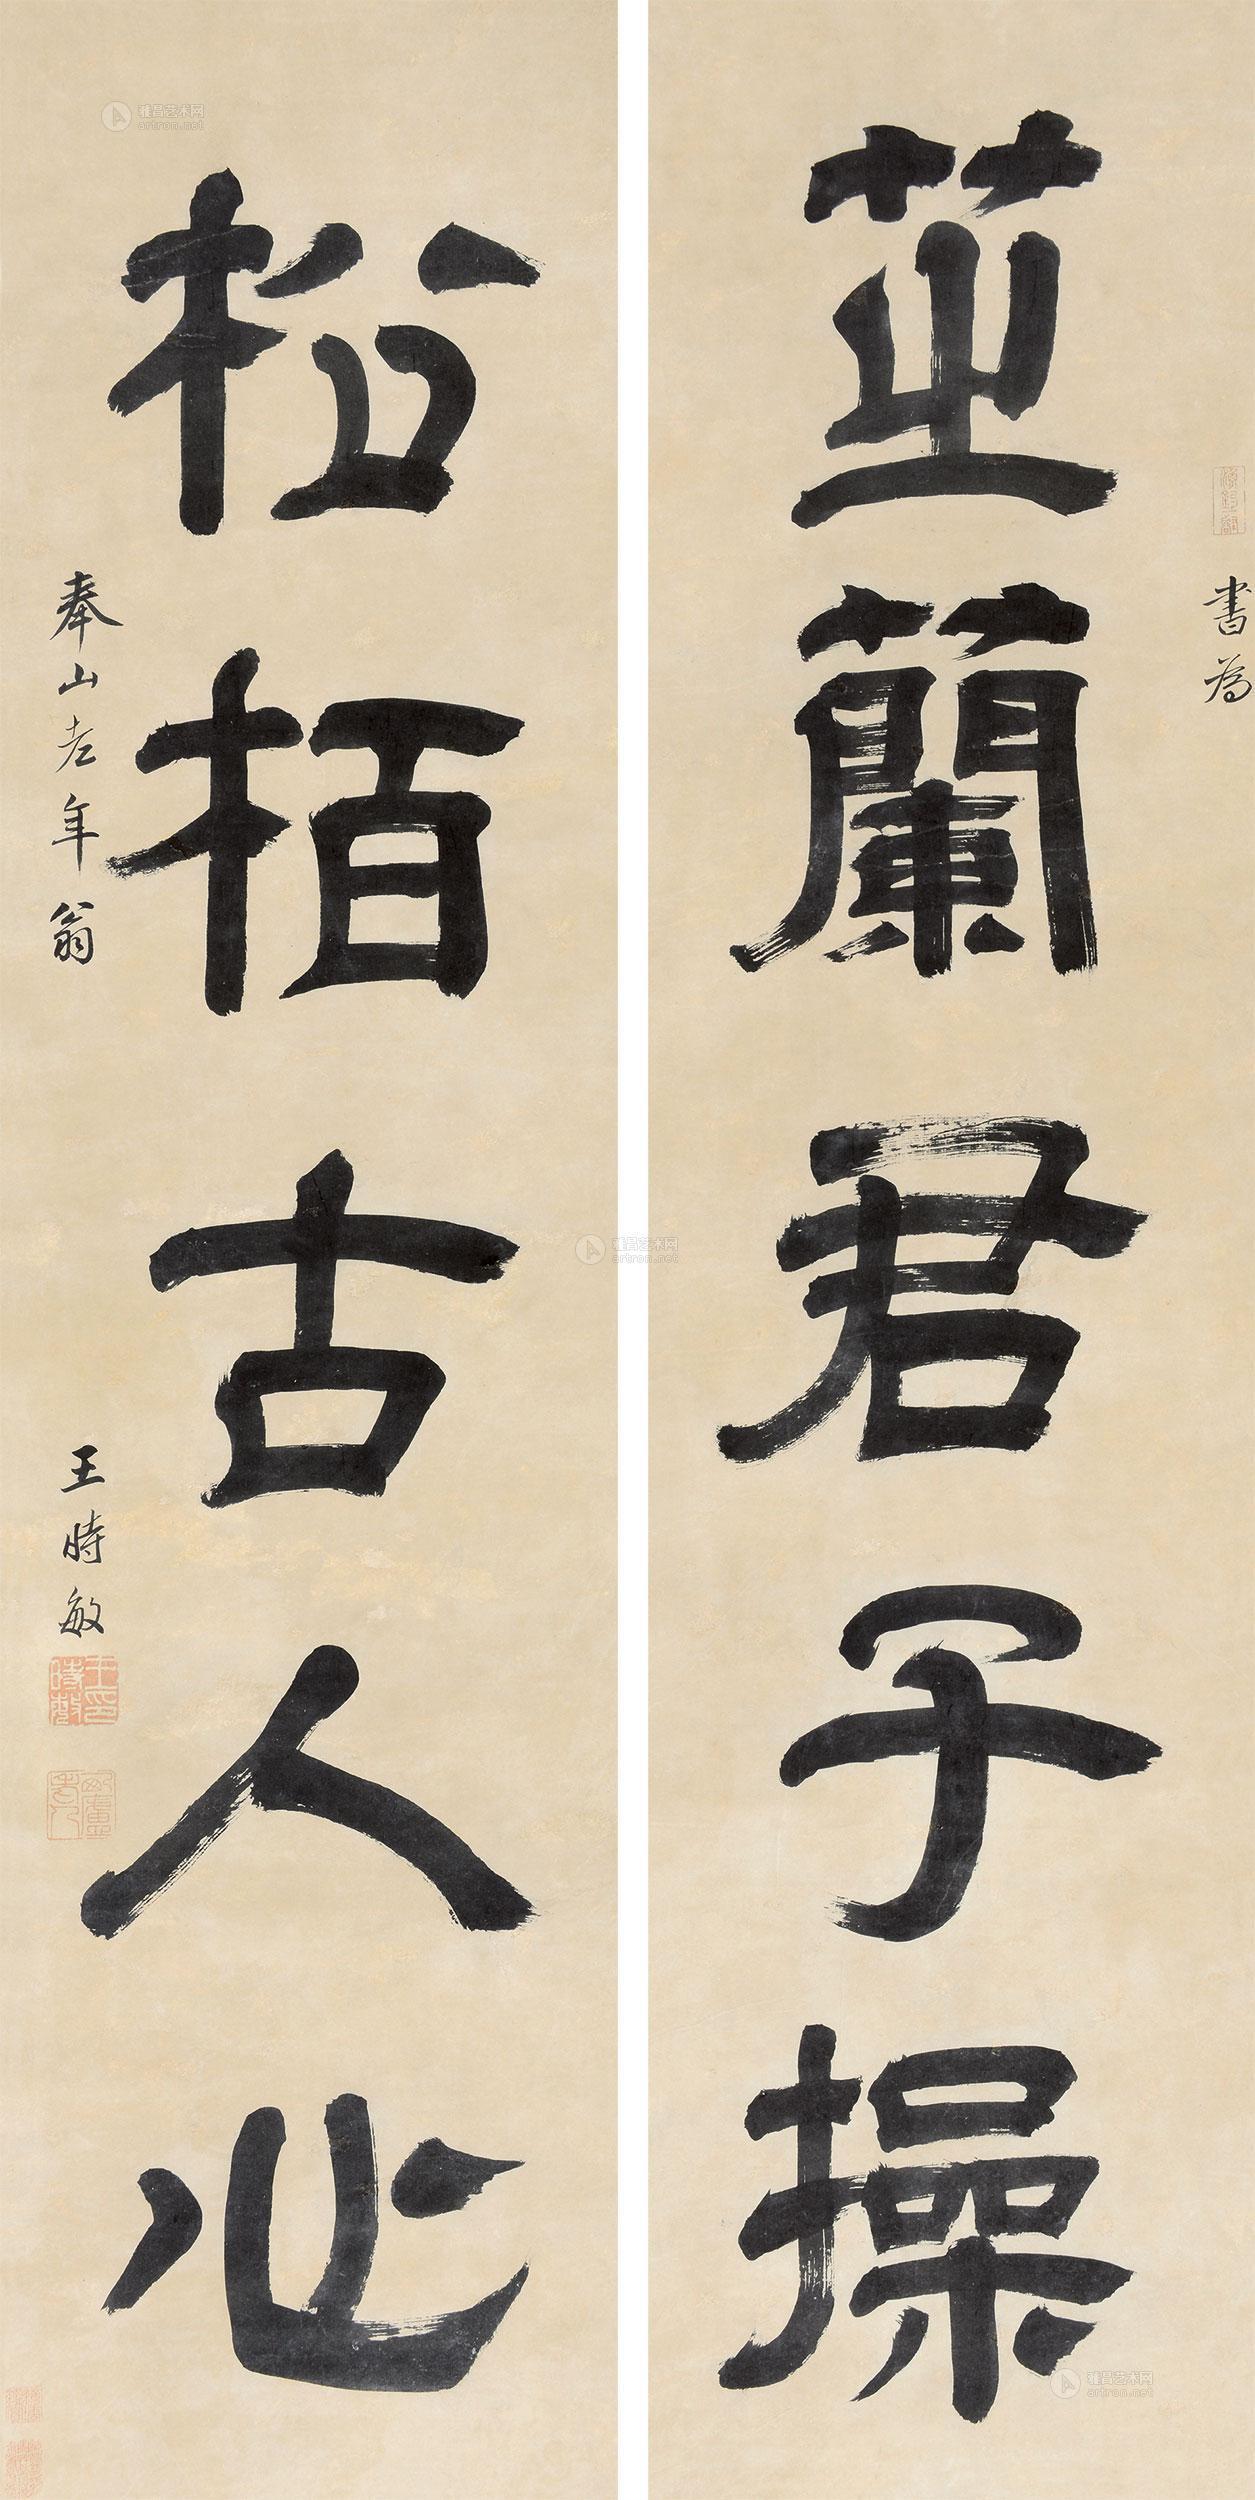 芝蘭君子操
書為
松栢古人心
奉山老年翁
王時敏
雅昌艺术网
artron.net
雅昌艺术网
artron.net
雅昌艺术网
artron.net